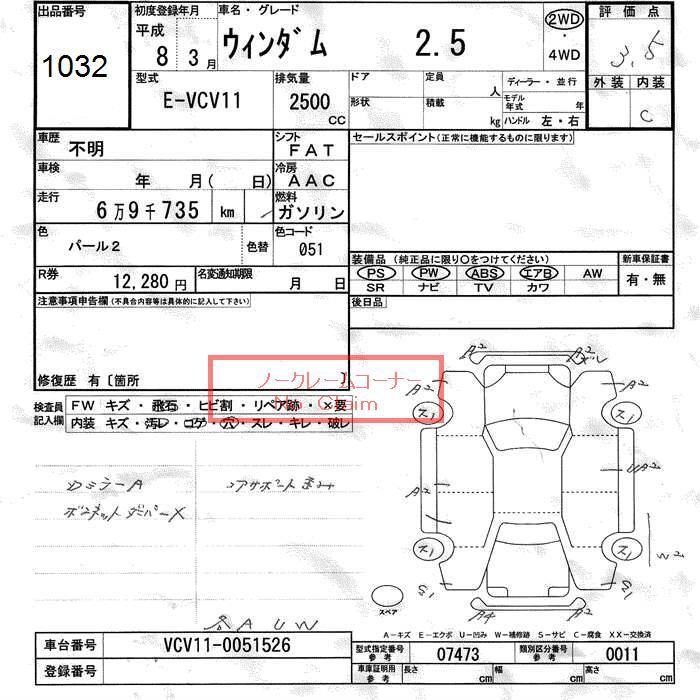 出品番号
1032
初度登録年月
平成
8年 3月
車名・グレード
ウィンダム 2.5
2WD
・
4WD
評価点
3.5
外装 内装
C
型式
E-VCV11
排気量
2500
CC
ドア
形状
定員
人
積載
kg
ディーラー・並行
モデル年式 年
ハンドル 左・右
車歴
不明
シフト
FAT
車検
年 月( 日)
冷房
AAC
走行
6万9千735 km
燃料
ガソリン
色
パール2
色替
色コード
051
R券
12,280円
名変通知期限
月 日
セールスポイント(正常に機能するものに限ります)
装備品 (純正品に限り○をつけてください)
PS PW ABS エアB AW
SR ナビ TV カワ
新車保証書
有・無
後日品
注意事項申告欄(不具合内容等は具体的に記入して下さい)
修復歴 有〔箇所 〕
ノークレームコーナー
No Claim
検査員記入欄
FW キズ・飛石・ヒビ割・リペア跡・×要
内装 キズ・汚レ・コゲ・穴・スレ・キレ・破レ
ロミラーA
ボンネットダンパーX
コアサポート歪み
A2
A2
A2
A2
ス1
ス1
A2
UA2
ス1
ス1
W2
S1
S1
A4
A2
スペア
A U W
A-キズ E-エクボ U-凹み W-補修跡 S-サビ C-腐食 XX-交換済
車台番号
VCV11-0051526
登録番号
型式指定番号
参考
07473
類別区分番号
参考
0011
車庫証明用
参考
長さ cm
幅 cm
高さ cm